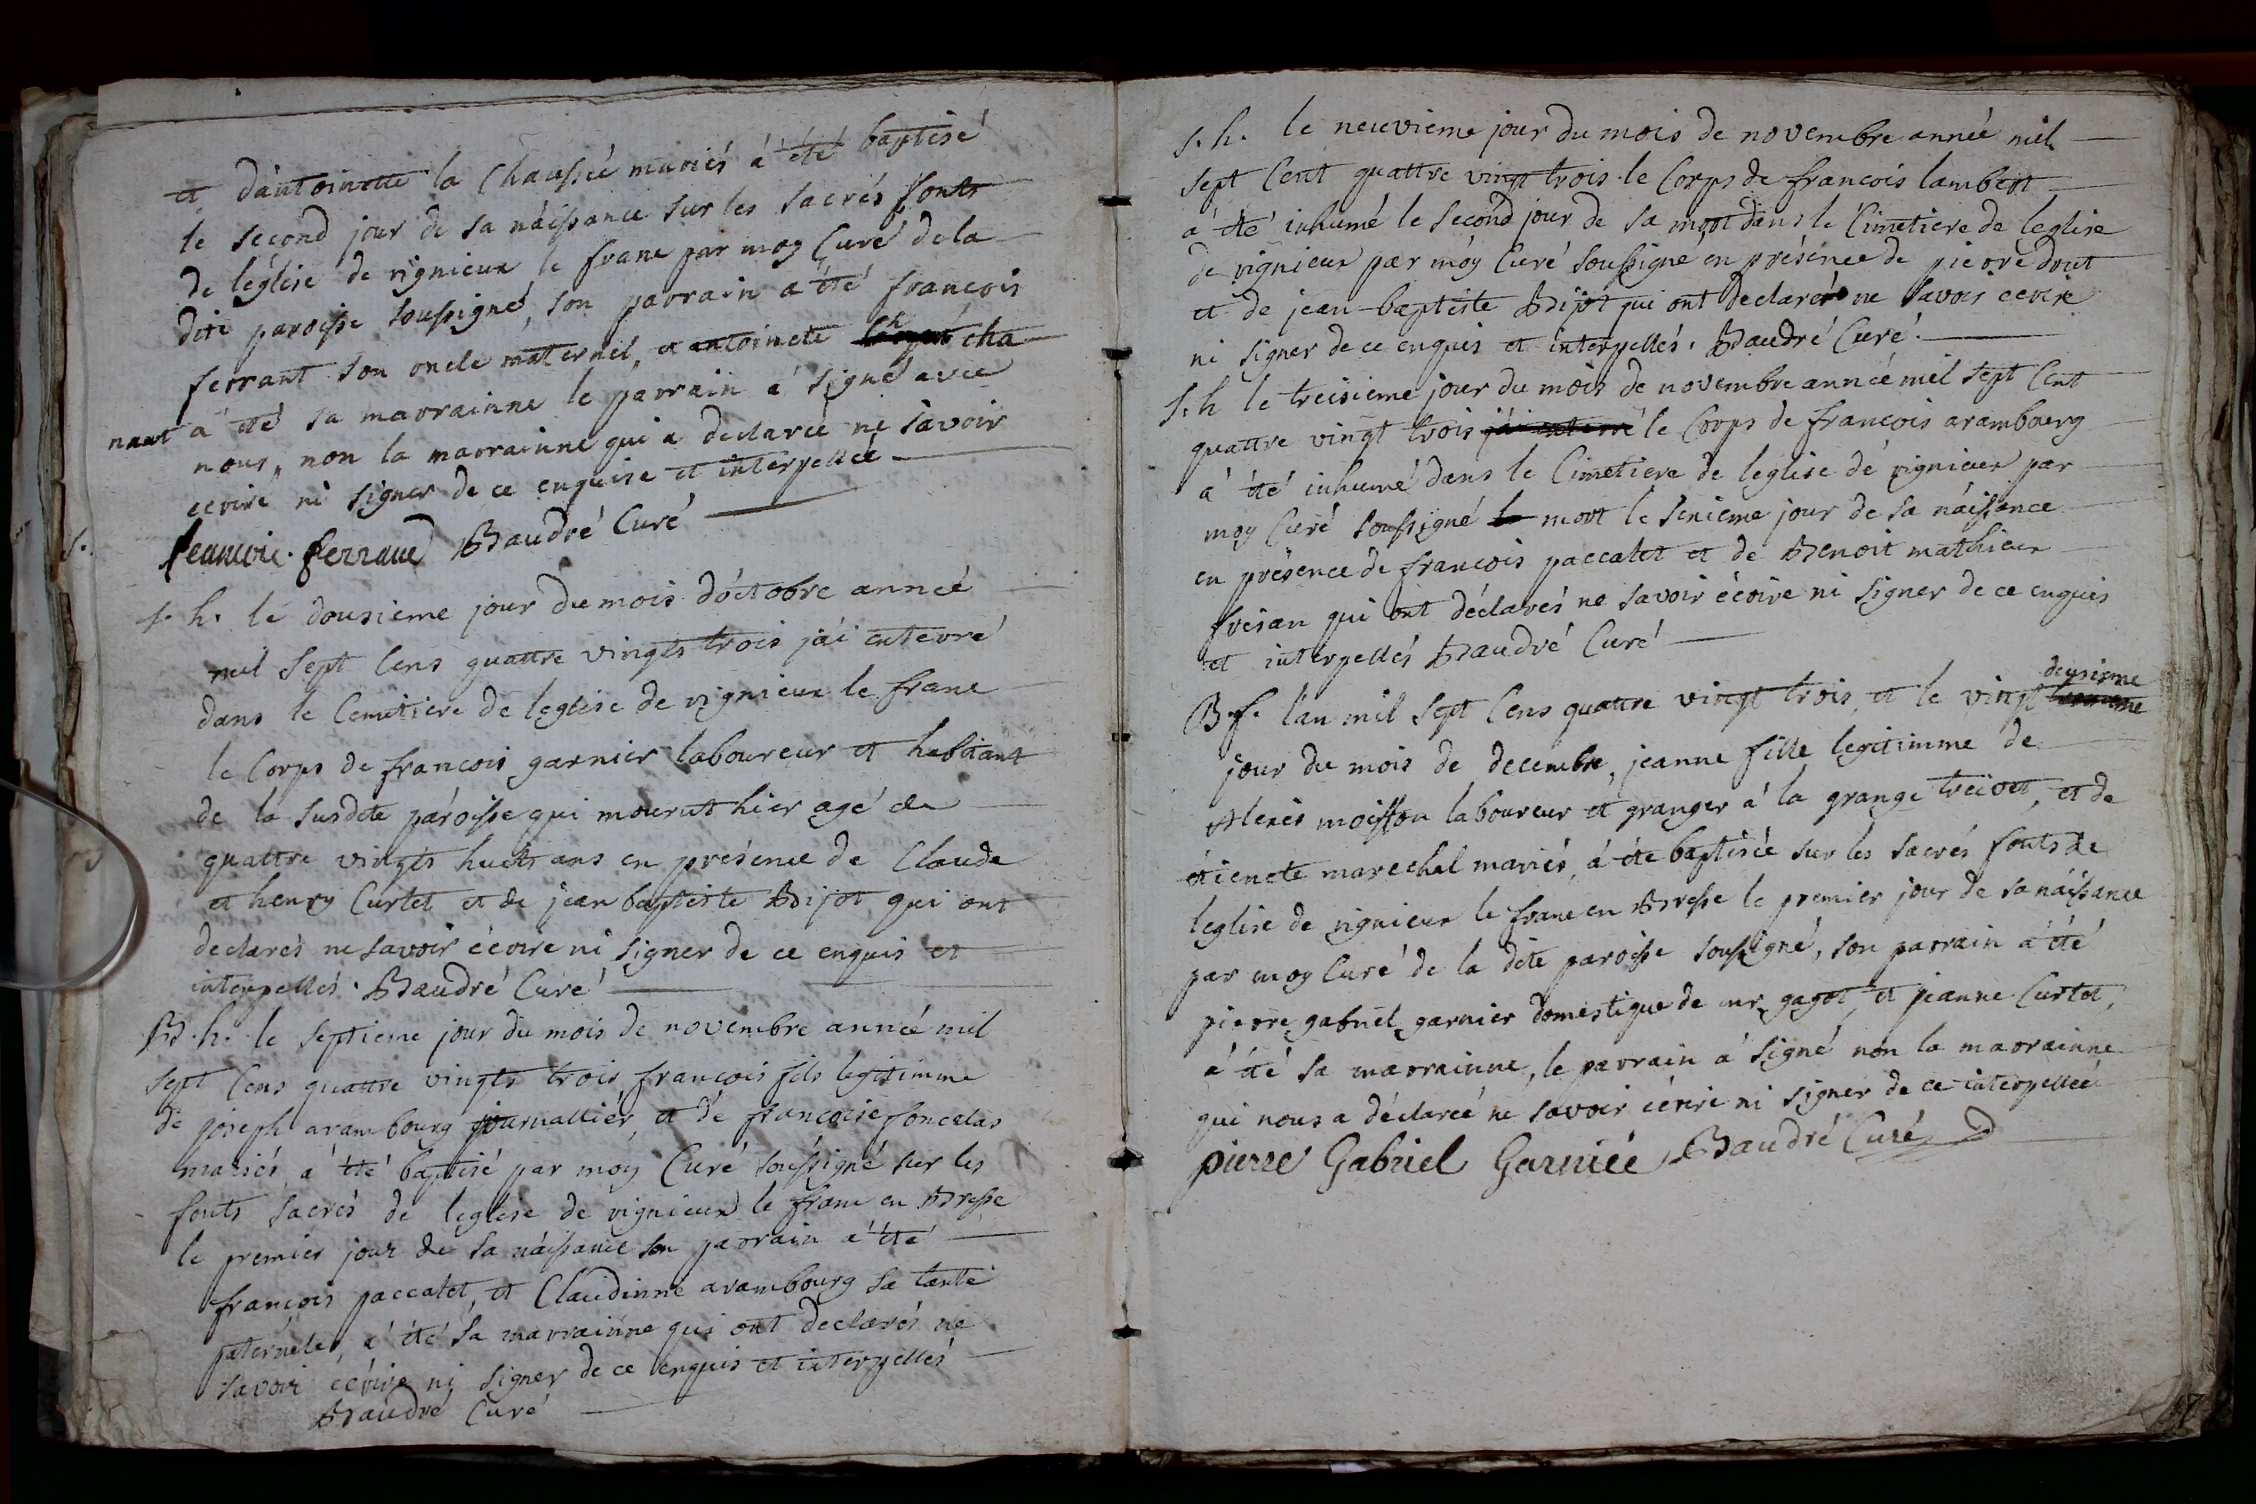 et dántoinette la Chaussée mariés á été baptisé
le sécond jour de sa náissance sur les sacrés fonts
de léglise de rignieux le franc par moy Curé de la
dite paroisse soussigné, son parrain a été françois
ferrant son oncle maternel, et antoinete cha
nant a été sa marrainne le parrain a signé avec
nous, non la marrainne qui a declarée ne savoir
ecrire ni signer de ce enquise et interpellée
francoi ferraud Baudré Curé
s.
s. h. le dousieme jour du mois dóctobre année
mil sept Cens quattre vingts trois j'ai enterré
dans le Cemitiere de léglise de rignieux le franc
le Corps de francois garnier laboureur et habitant
de la susdite paroisse qui mourut hier agé de
quattre vingts huits ans en présence de Claude
et henry Curtet et de jean baptiste Bijot qui ont
declarés ne savoir écrire ni signer de ce enquis et
interpellés. Baudré Curé
B. h. le septieme jour du mois de novembre année mil
sept Cens quattre vingts trois francois fils legitimme
de joseph arambourg journallier, et de francoise foncelas
mariés, a été baptisé par moy Curé soussigné sur les
fonts sacrés de léglise de rignieux le franc en Bresse
le premier jour de sa náissance son parrain a été
françois paccalet, et Claudinne arambourg sa tante
paternele, a été sa marrainne qui ont declarés ne
savoir écrire ni signer de ce enquis et interpellés
Baudré Curé
s. h. le neuvieme jour du mois de novembre année mil
sept Cent quattre vingt trois le Corps de francois lambert
á été inhumé le second jour de sa mort dans le Cimetiere de leglise
de rignieux par móy Curé soussigné en présence de pierre dout
et de jean-baptiste Bijot qui ont declarés ne savoir ecrire
ni signer de ce enquis et interpellés. Baudré Curé.
s. h le treisieme jour du mois de novembre année mil sept Cent
quattre vingt trois j'ai enterré le Corps de francois arambourg
a été inhumé dans le Cimetiere de leglise de rignieux par
moy Curé soussigné mort le sixieme jour de sa náissance
en présence de francois paccalet et de Benoit mathieux
fresan qui ont déclarés ne savoir écrire ni signer de ce enquis
et interpellés Baudré Curé
B. f. lan mil sept Cens quattre vingt trois, et le vingt deusieme
jour du mois de decembre, jeanne fille legitimme de
Alexis moisson laboureur et granger á la grange treivet, et de
étienete marechal mariés, á éte baptisée sur les sacrés fonts de
leglise de rignieux le franc en Bresse le premier jour de sa náissance
par moy Curé de la dite paroisse soussigné, son parrain á été
pierre gabriel garnier domestique de mr gagot, et jeanne Curtet,
a été sa marrainne, le parrain á signé non la marrainne
qui nous a déclarée ne savoir écrire ni signer de ce interpellée
pierre Gabriel Garniée Baudré Curé